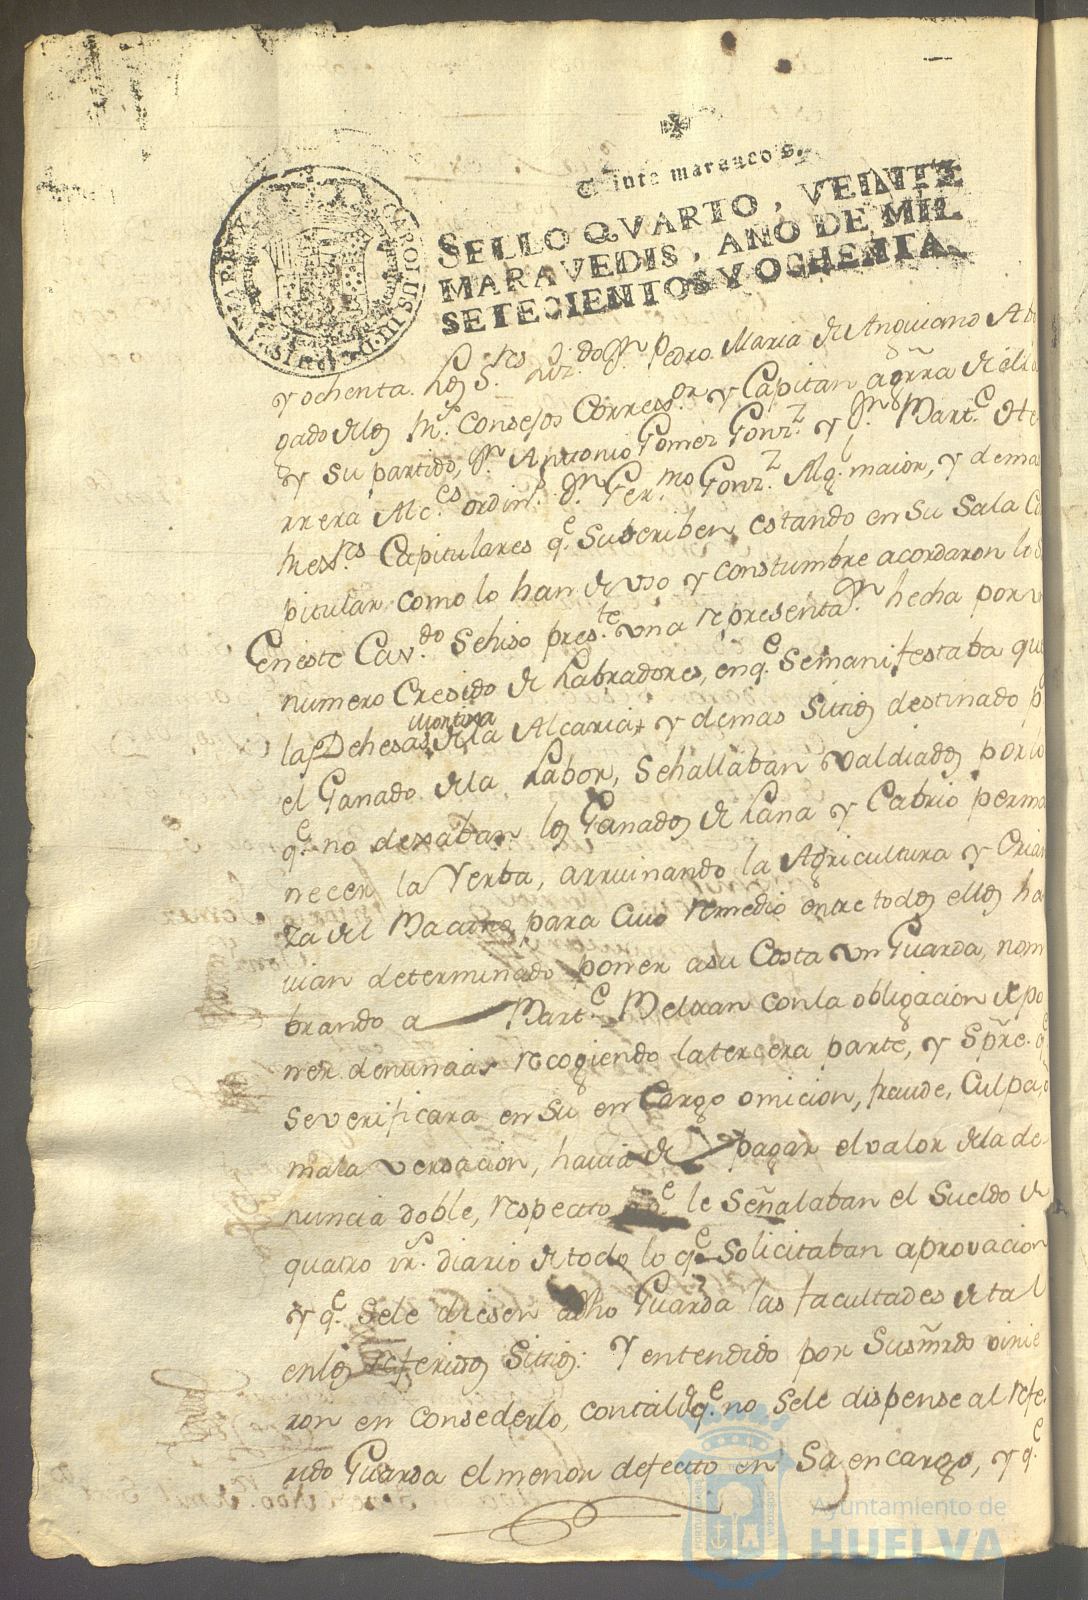 SELLO QVARTO, VEINTE
MARAVEDIS, AÑO DE MIL
SETECIENTOS Y OCHENTA
CAROLUS III D G HISPANIAR REX
y ochenta. Los S.res Liz.do Dn Pedro Maria de Anguiano Abo
gado de los Rs. Consejos Corress.or y Capitan a grra de ella
y su partido, Dn Antonio Gomez Gonz.z y Dn Mart. de He
rrera Alc.es ordin.s Dn Ger.mo Gonz.z Alg. maior, y demas
Capitulares q.e Subcriben, estando en Su Sala Ca
pitular como lo han de uso y constumbre acordaron lo
En este Cav.do Sehiso pres.te una representa.n hecha por un
numero Cresido de Labradores, en q.e Semanifestaba que
las Dehesas de la Alcaria, y demas Sitios destinado p
el Ganado de la Labor, Sehallaban valdiados por lo
q.e no dexaban los Ganados de Lana y Cabrio perma
necer la Yerba, arruinando la Agricultura y Crian
za del para Cuio remedio entre todos ellos ha
vian determinado poner asu Costa un Guarda, nom
brando a Mart. Beltran conla obligacion de po
ner denuncias recogiendo latercera parte, y Spre. q.e
Severificara en Su en Cargo omicion, fraude, Culpa, o
mala versacion, havia de pagar elvalor dela de
nuncia doble, respecto aq.e le Señalaban el Sueldo de
quatro rs. diario de todo lo q.e Solicitaban aprovacion
y q.e Sele diesen adho Guarda las facultades de tal
enlos referidos Sitios: Y entendido por Susmrds vinie
ron en Consederlo, contal de q.e no Sele dispense al refe
rido Guarda elmenor defecto en Su encargo, y q.e
Ayuntamiento de
HUELVA